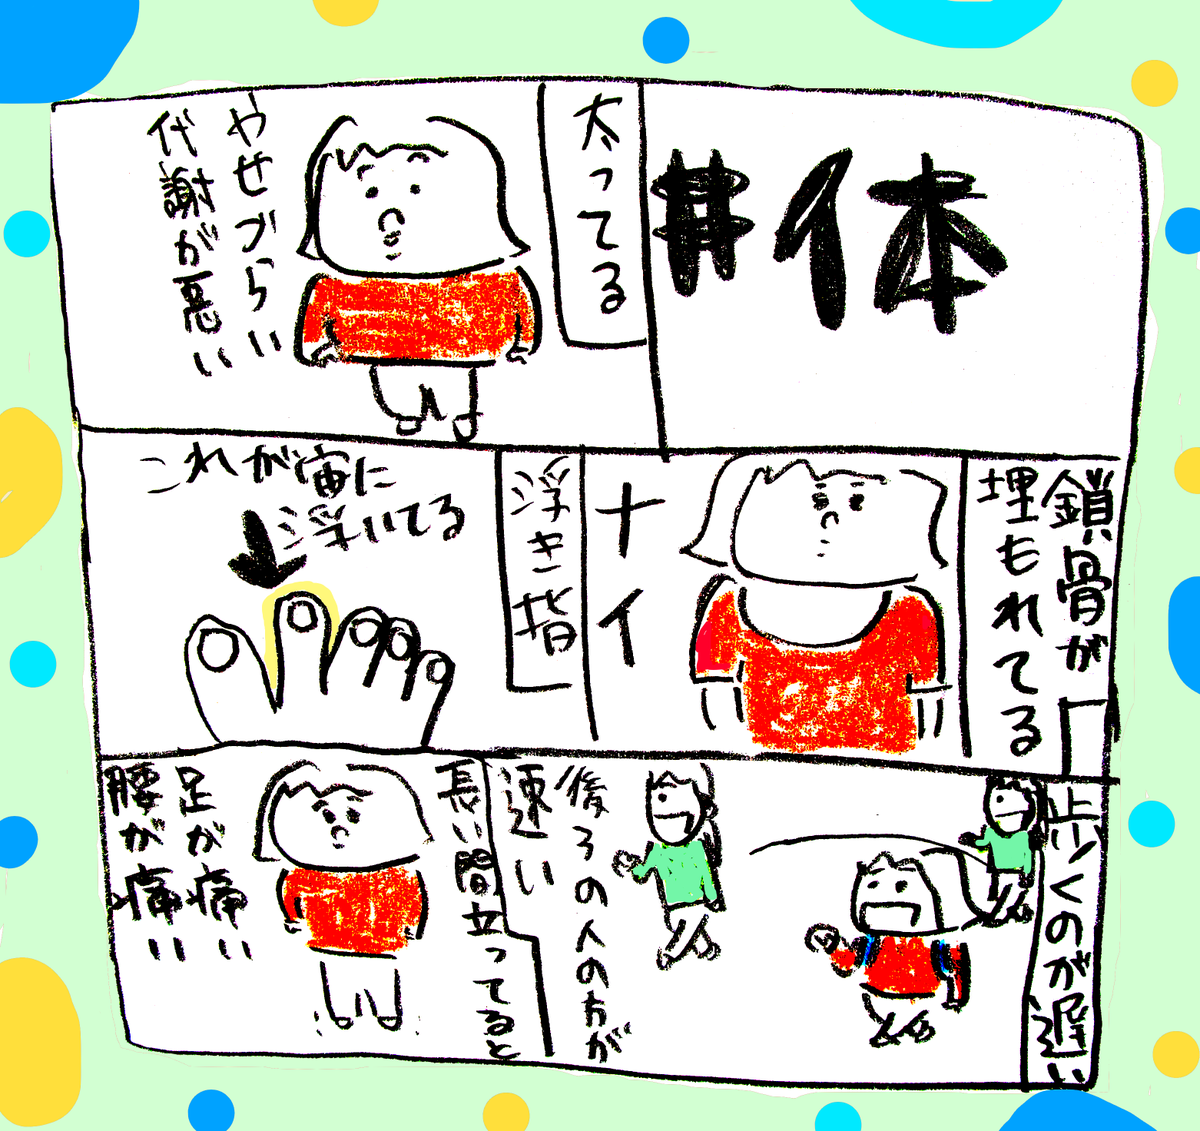 #体
太ってる
やせづらい
代謝が悪い
鎖骨が
埋もれてる
ナイ
浮き指
これが宙に
浮いてる
歩くのが遅い
後ろの人の方が
速い
長い間立ってると
足が痛い
腰が痛い